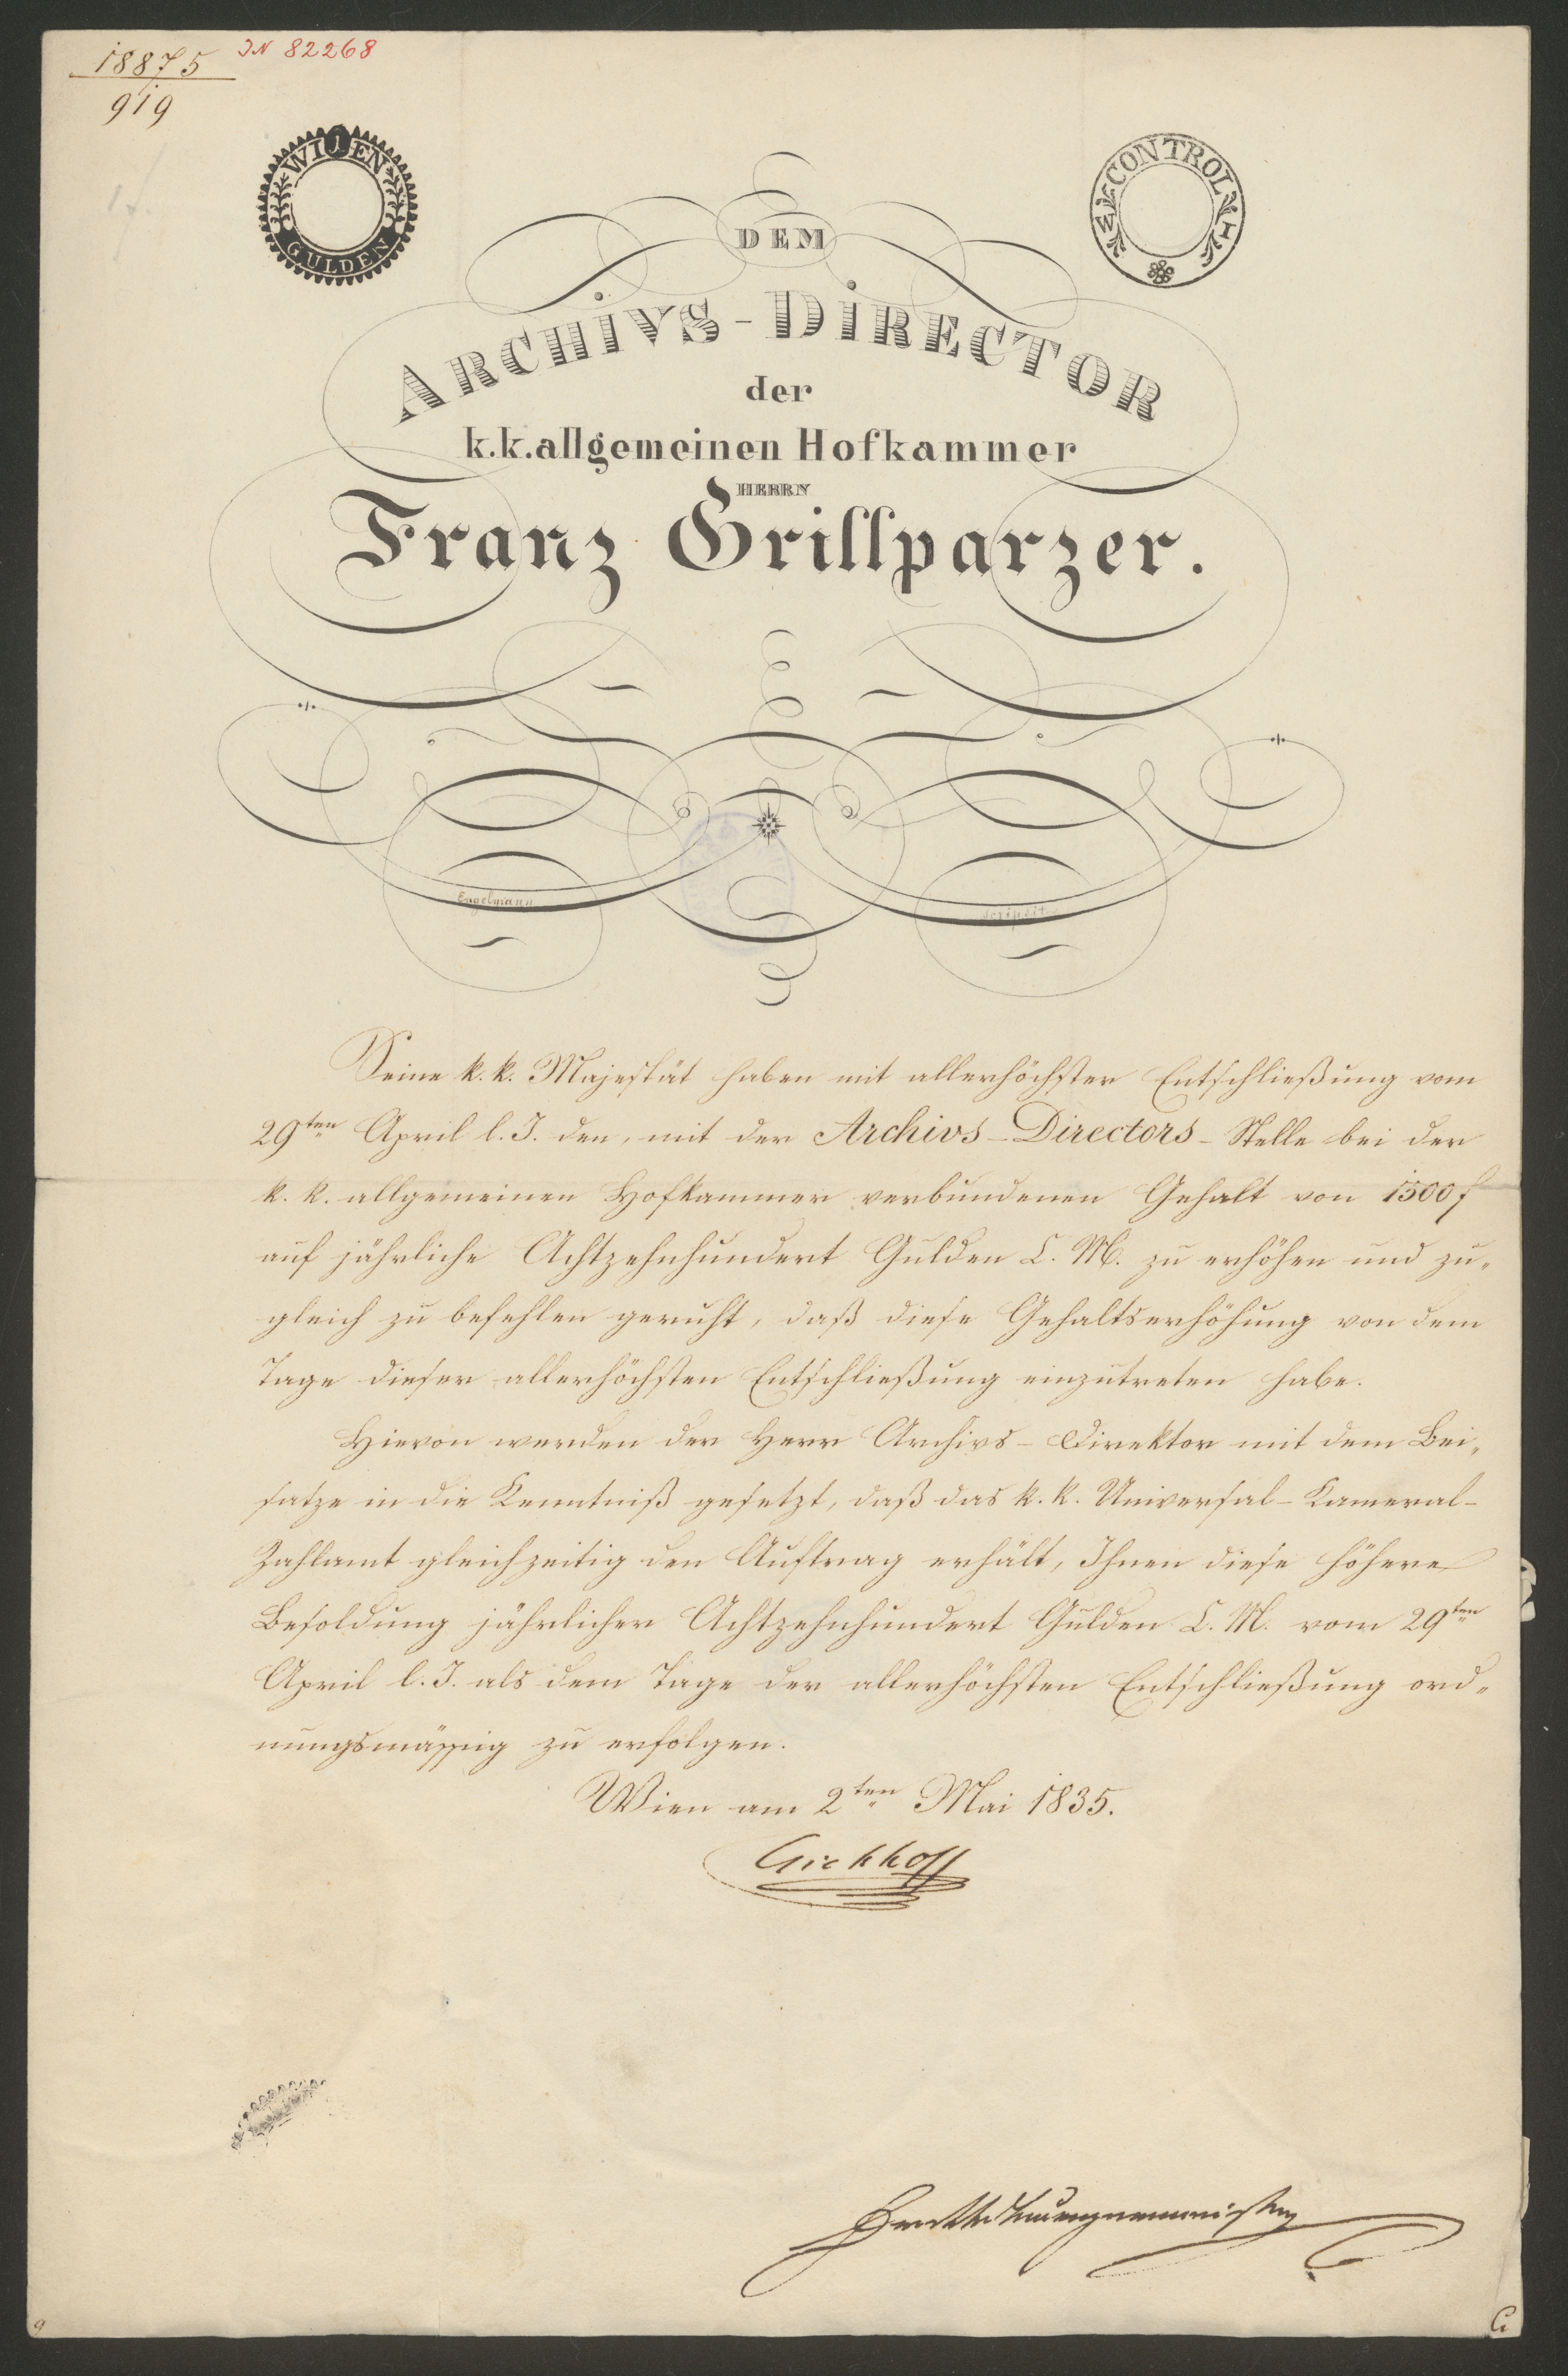 18875
919
IN 82268
WIEN
1
GULDEN
CONTROL
DEM
ARCHIVS-DIRECTOR
der
k.k.allgemeinen Hofkammer
HERRN
Franz Grillparzer.
Engelmann
scripsit
Seine k. k. Majestät haben mit allerhöchster Entschließung vom
29ten April l. J. den, mit der Archivs-Directors-Stelle bei der
k. k. allgemeinen Hofkammer verbundenen Gehalt von 1500 f
auf jährliche Achtzehnhundert Gulden C. M. zu erhöhen und zu„
gleich zu befehlen geruht, daß diese Gehaltserhöhung von dem
Tage dieser allerhöchsten Entschließung einzutreten habe.
Hievon werden der Herr Archivs-Direktor mit dem Bei„
satze in die Kenntniß gesetzt, daß das k. k. Universal-Kameral-
Zahlamt gleichzeitig den Auftrag erhält, Ihnen diese höhere
Besoldung jährlicher Achtzehnhundert Gulden C. M. vom 29ten
April l. J. als dem Tage der allerhöchsten Entschließung ord„
nungsmässig zu erfolgen.
Wien am 2ten Mai 1835.
Eichhoff